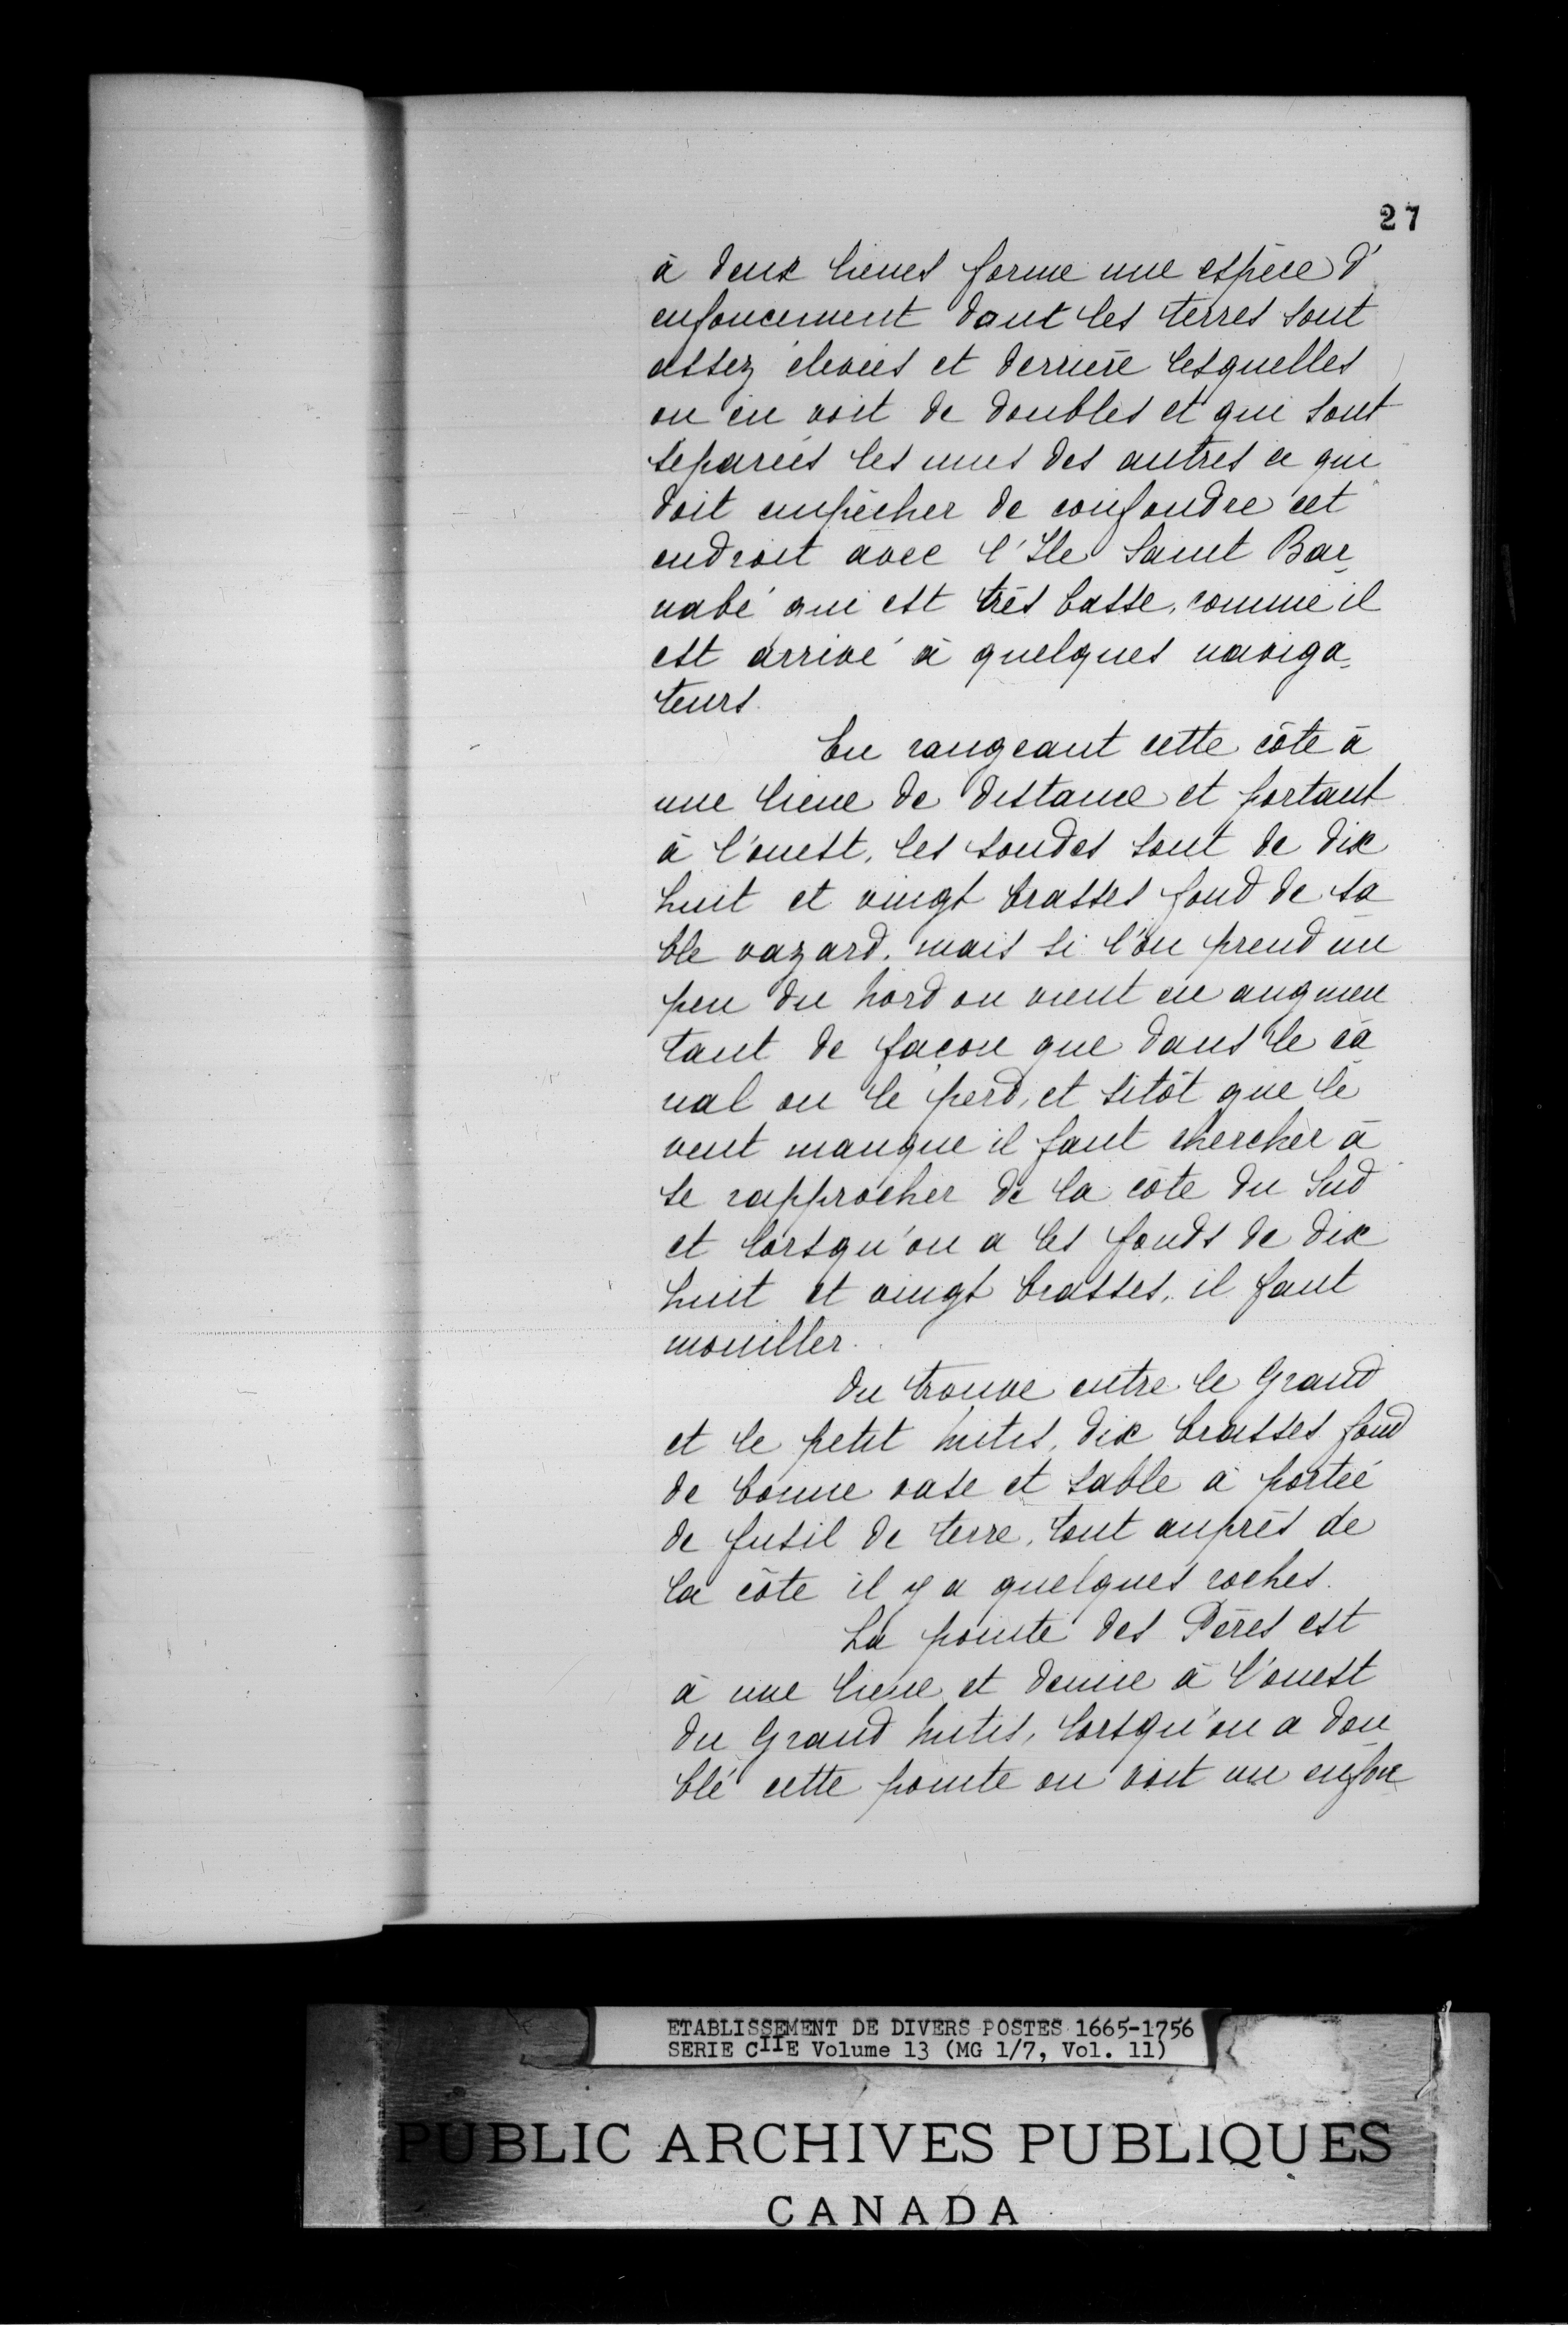 27
à deux lieues forme une espèce d'
enfoncement dont les terres sont
assez élevées et derrière lesquelles
on en voit de doubles et qui sont
separées les unes des autres ce qui
doit empêcher de confondre cet
endroit avec l'Ile Saint Bar-
nabé qui est très basse, comme il
est arrivé à quelques naviga-
teurs.
En rangeant cette côte à
une lieue de distance et portant
à l'ouest, les sondes sont de dix
huit et vingt brasses fond de sa-
ble vazard, mais si l'on prend un
peu du Nord on vient en augmen
tant de façon que dans le ca-
nal on le perd, et sitôt que le
vent manque il faut chercher à
se rapprocher de la côte du Sud
et lorsqu'on a les fonds de dix
huit et vingt brasses, il faut
mouiller.
On trouve entre le Grand
et le petit Mitis, dix brasses fond
de bonne vase et sable à portée
de fusil de terre, tout auprès de
la côte il y a quelques roches.
La pointe des Pères est
à une lieue et demie à l'ouest
du Grand Mitis, lorsqu'on a dou-
blé cette pointe on voit un enfon-
ETABLISSEMENT DE DIVERS POSTES 1665-1756
SERIE CIIE Volume 13 (MG 1/7, Vol. 11)
PUBLIC ARCHIVES PUBLIQUES
CANADA